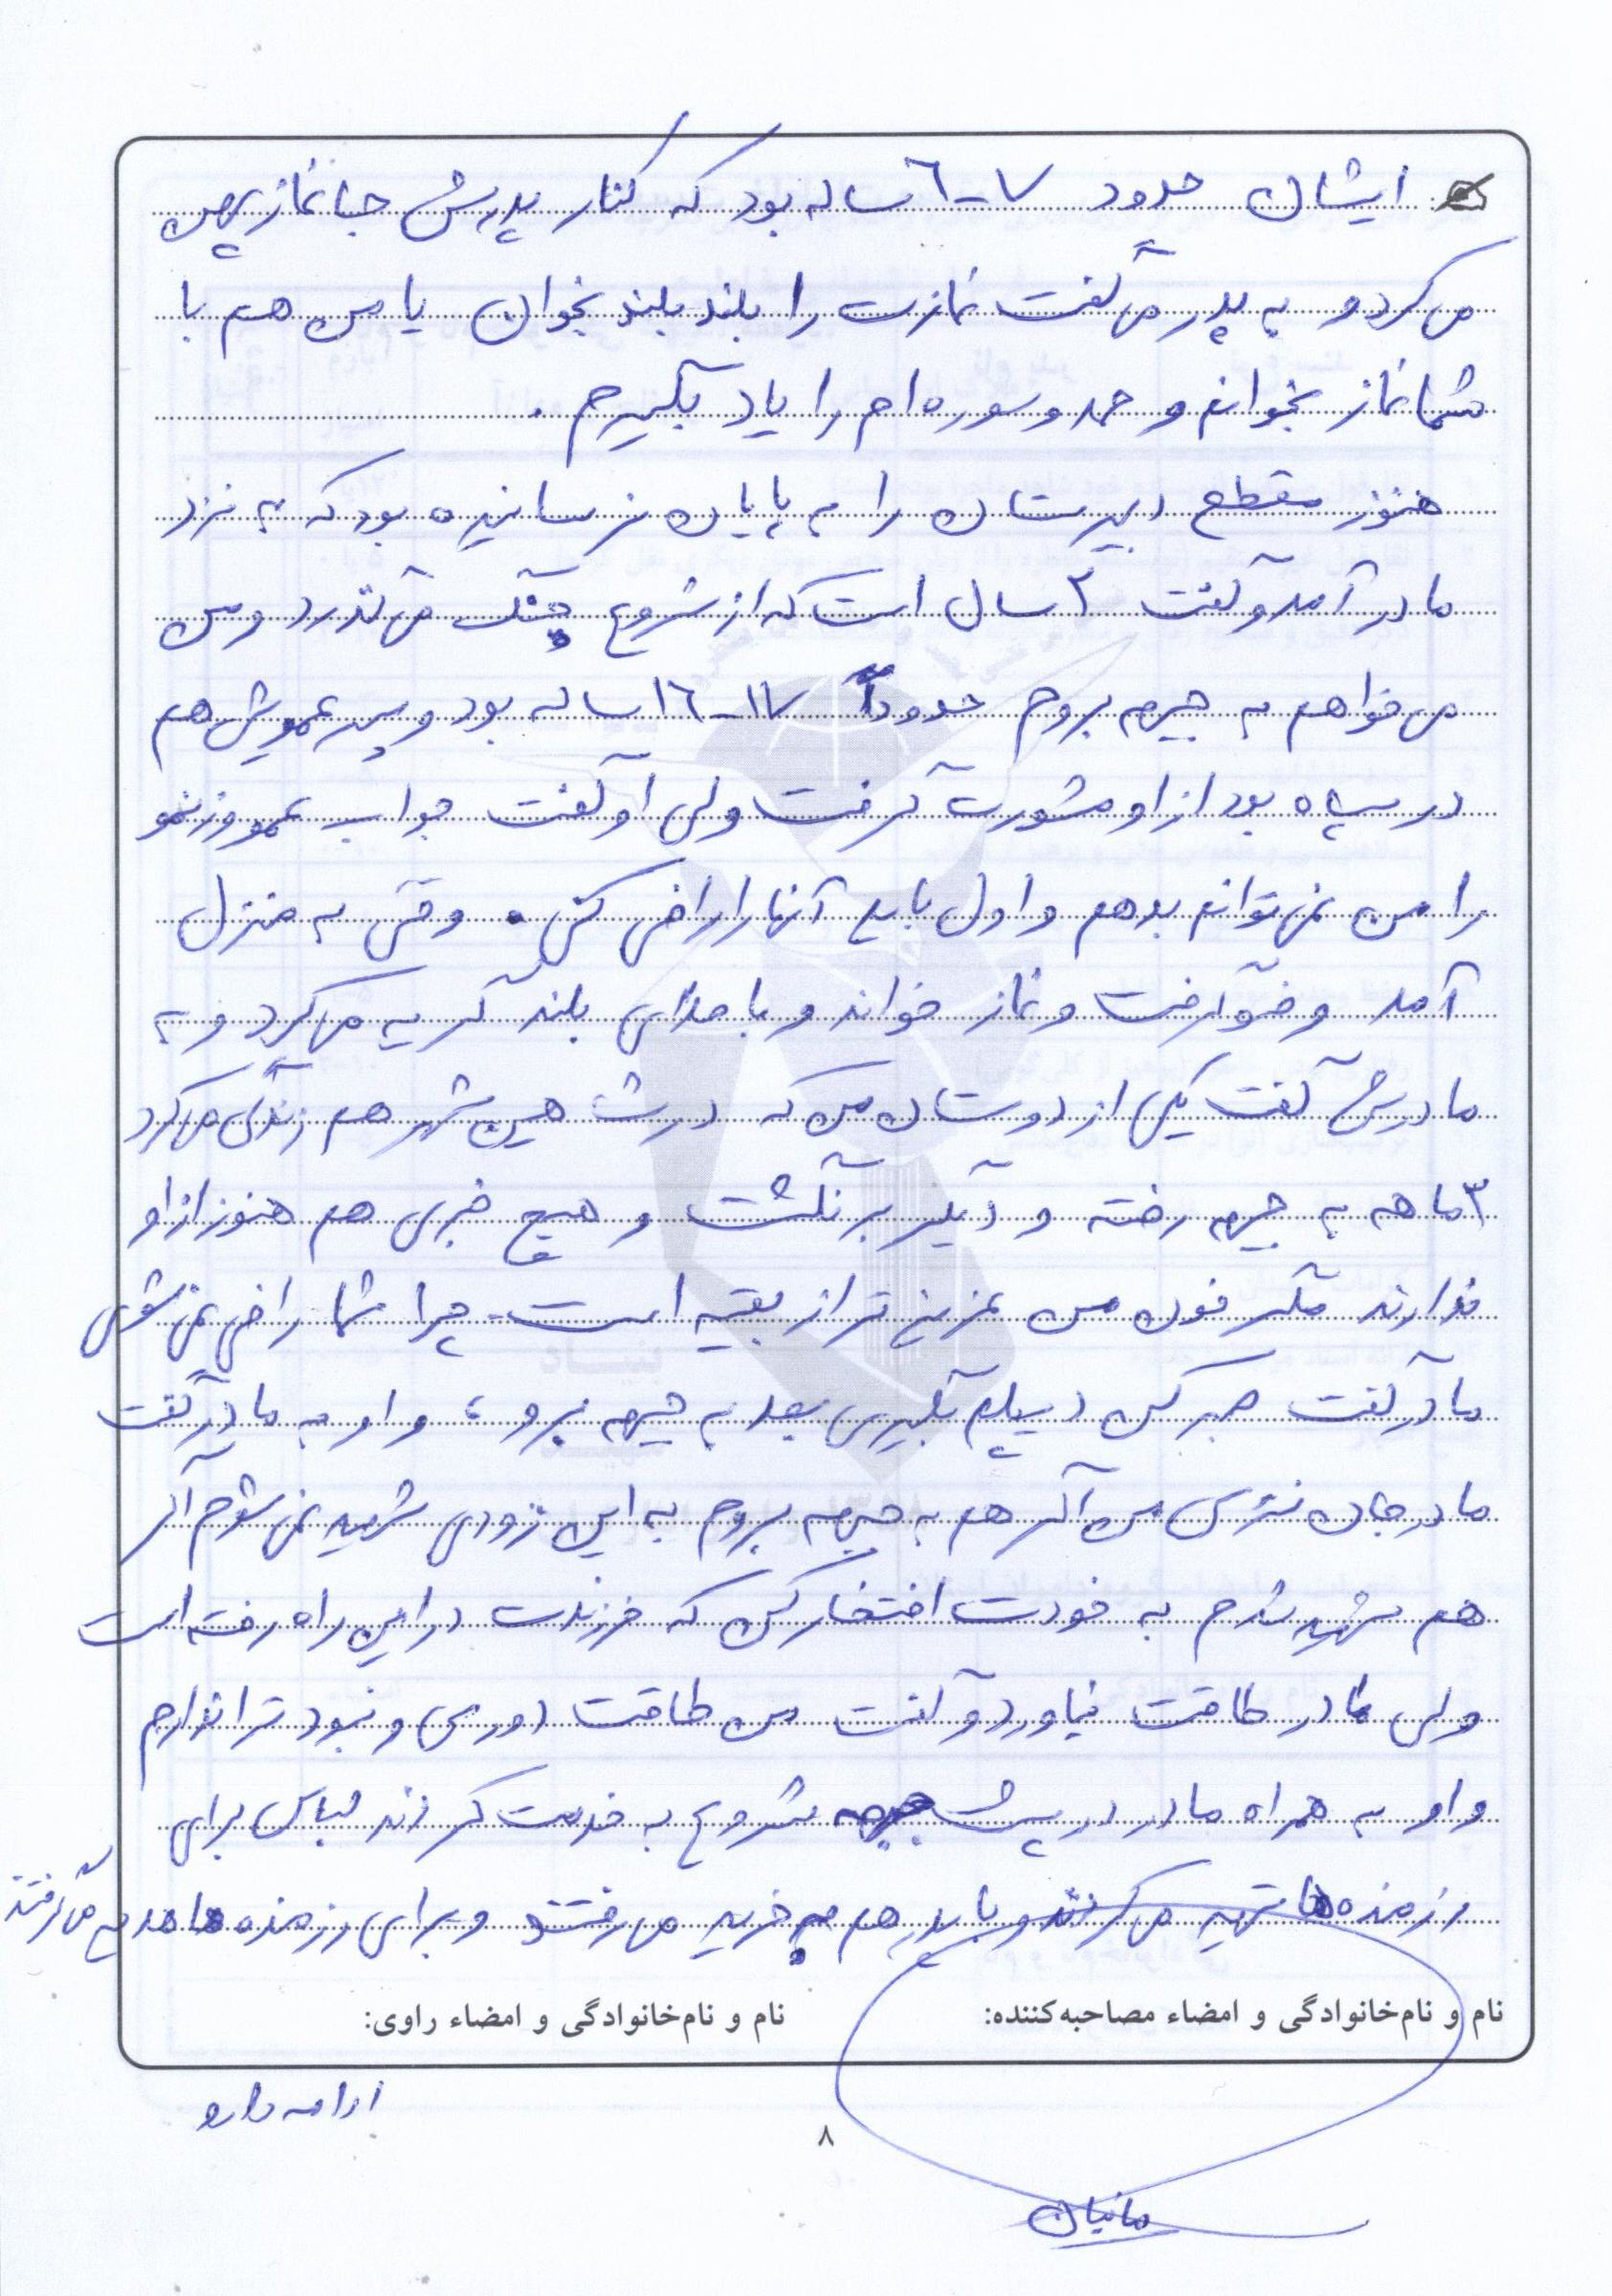 ایشان حدود ۷-۶ ساله بود که کنار پدرش جانماز پهن
می‌کرد و به پدر می‌گفت نمازت را بلند بلند بخوان یا من هم با
شما نماز بخوانم و حمد و سوره‌ام را یاد بگیرم.
هنوز مقطع دبیرستان را به پایان نرسانیده بود که به نزد
مادر آمد و گفت ۲ سال است که از شروع جنگ می‌گذرد و من
می‌خواهم به جبهه بروم حدوداً ۱۷-۱۶ ساله بود و پسرعمویش هم
در سپاه بود از او مشورت گرفت ولی او گفت جواب عمو و زنعمو
را من نمی‌توانم بدهم و اول باید آنها را راضی کنی. وقتی به منزل
آمد وضو گرفت و نماز خواند و با صدای بلند گریه می‌کرد و به
مادرش گفت یکی از دوستان من که در همین شهر هم زندگی می‌کرد
۳ ماهه به جبهه رفته و دیگر برنگشت و هیچ خبری هم هنوز از او
ندارند مگر خون من عزیز تر از بقیه است. چرا شما راضی نمی‌شوی
مادر گفت صبر کن دیپلم بگیری بعد به جبهه برو، و او به مادر گفت
مادر جان نترس من اگر هم به جبهه بروم به این زودی شهید نمی‌شوم اگر
هم شهید شدم به خودت افتخار کن که فرزندت در این راه رفته است
ولی مادر طاقت نیاورد و گفت من طاقت دوری و نبود ترا ندارم
و او به همراه مادر در پشت جبهه شروع به خدمت کردند لباس برای
رزمنده‌ها تهیه می‌کردند و با پدر هم به خرید می‌رفتند و برای رزمنده‌ها هدیه می‌گرفتند
نام و نام‌خانوادگی و امضاء مصاحبه‌کننده: نام و نام‌خانوادگی و امضاء راوی:
ادامه دارد
۸
مانیان